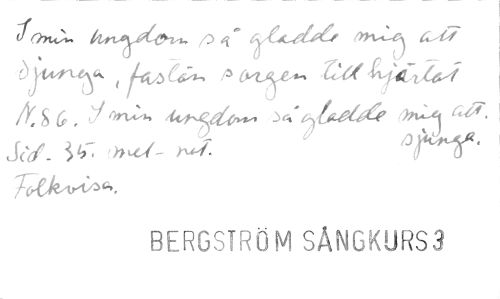 I min ungdom så gladde mig att
sjunga, fastän sorgen till hjärtat
N.86. I min ungdom så gladde mig att.
sjunga.
Sid. 35. mel-not.
Folkvisa.
BERGSTRÖM SÅNGKURS 3